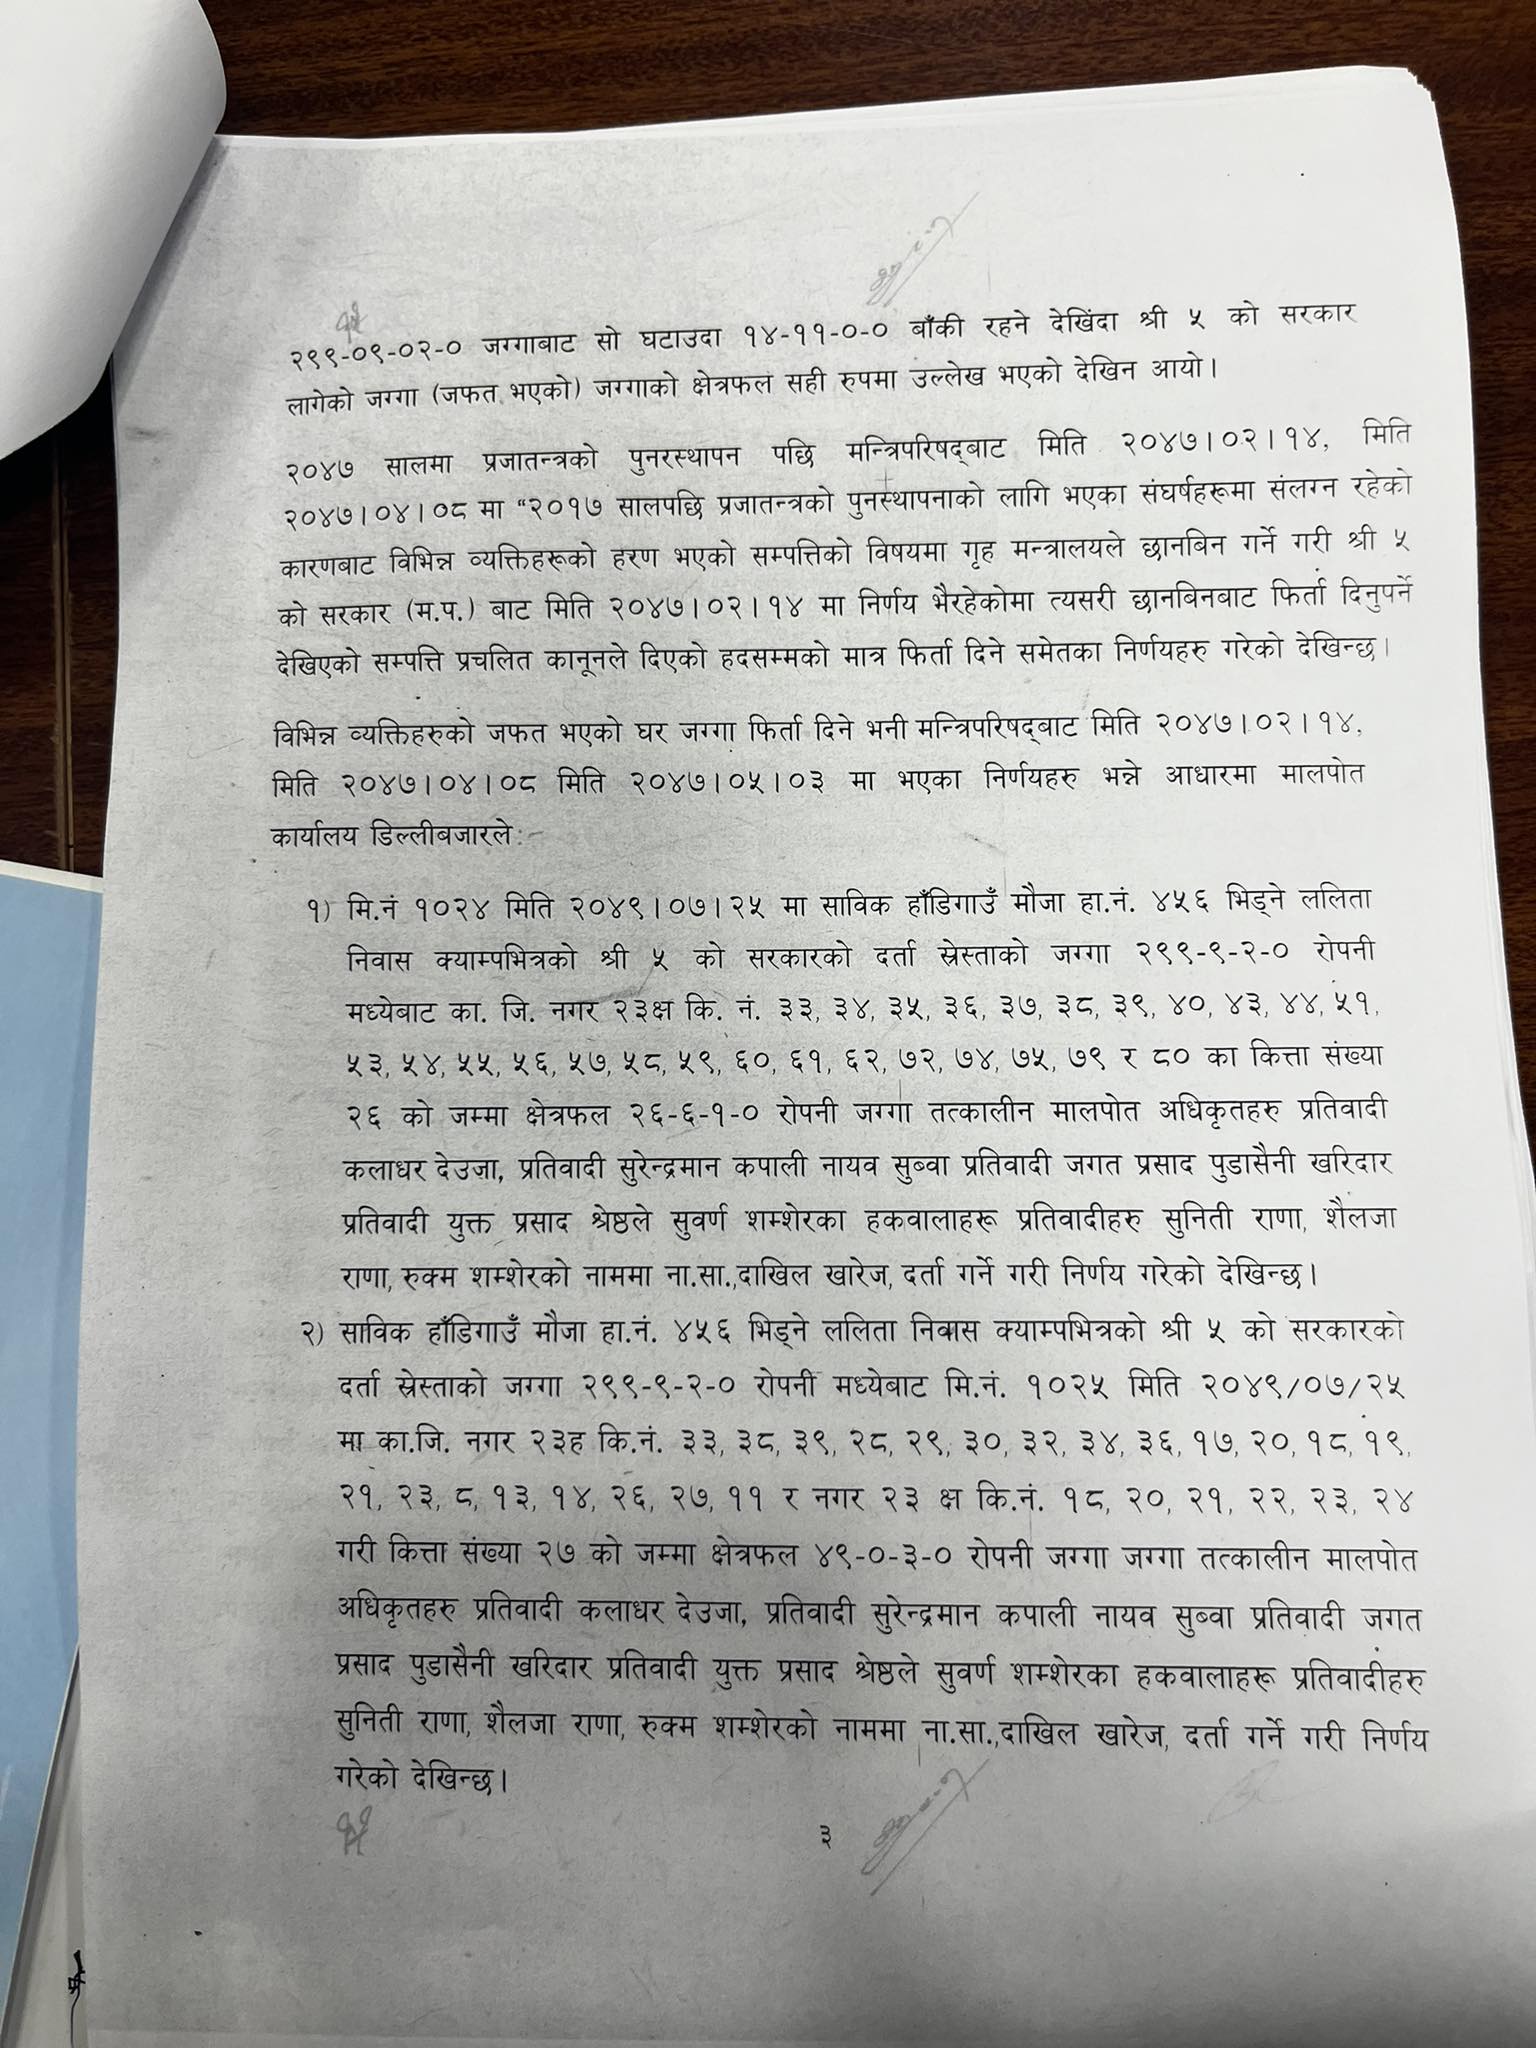 २९९-०९-०२-० जग्गाबाट सो घटाउदा १४-११-०-० बाँकी रहने देखिंदा श्री ५ को सरकार
लागेको जग्गा (जफत भएको) जग्गाको क्षेत्रफल सही रुपमा उल्लेख भएको देखिन आयो।
२०४७ सालमा प्रजातन्त्रको पुनरस्थापन पछि मन्त्रिपरिषद्बाट मिति २०४७।०२।१४, मिति
२०४७।०४।०८ मा “२०१७ सालपछि प्रजातन्त्रको पुनस्थापनाको लागि भएका संघर्षहरूमा संलग्न रहेको
कारणबाट विभिन्न व्यक्तिहरूको हरण भएको सम्पत्तिको विषयमा गृह मन्त्रालयले छानबिन गर्ने गरी श्री ५
को सरकार (म.प.) बाट मिति २०४७।०२।१४ मा निर्णय भैरहेकोमा त्यसरी छानबिनबाट फिर्ता दिनुपर्ने
देखिएको सम्पत्ति प्रचलित कानूनले दिएको हदसम्मको मात्र फिर्ता दिने समेतका निर्णयहरु गरेको देखिन्छ।
विभिन्न व्यक्तिहरुको जफत भएको घर जग्गा फिर्ता दिने भनी मन्त्रिपरिषद्बाट मिति २०४७।०२।१४,
मिति २०४७।०४।०८ मिति २०४७।०५।०३ मा भएका निर्णयहरु भन्ने आधारमा मालपोत
कार्यालय डिल्लीबजारले:-
१) मि.नं १०२४ मिति २०४९।०७।२५ मा साविक हाँडिगाउँ मौजा हा.नं. ४५६ भिड्ने ललिता
निवास क्याम्पभित्रको श्री ५ को सरकारको दर्ता स्रेस्ताको जग्गा २९९-९-२-० रोपनी
मध्येबाट का. जि. नगर २३क्ष कि. नं. ३३, ३४, ३५, ३६, ३७, ३८, ३९, ४०, ४३, ४४, ५१,
५३, ५४, ५५, ५६, ५७, ५८, ५९, ६०, ६१, ६२, ७२, ७४, ७५, ७९ र ८० का कित्ता संख्या
२६ को जम्मा क्षेत्रफल २६-६-१-० रोपनी जग्गा तत्कालीन मालपोत अधिकृतहरु प्रतिवादी
कलाधर देउजा, प्रतिवादी सुरेन्द्रमान कपाली नायव सुब्वा प्रतिवादी जगत प्रसाद पुडासैनी खरिदार
प्रतिवादी युक्त प्रसाद श्रेष्ठले सुवर्ण शम्शेरका हकवालाहरू प्रतिवादीहरु सुनिती राणा, शैलजा
राणा, रुक्म शम्शेरको नाममा ना.सा.,दाखिल खारेज, दर्ता गर्ने गरी निर्णय गरेको देखिन्छ।
२) साविक हाँडिगाउँ मौजा हा.नं. ४५६ भिड्ने ललिता निवास क्याम्पभित्रको श्री ५ को सरकारको
दर्ता स्रेस्ताको जग्गा २९९-९-२-० रोपनी मध्येबाट मि.नं. १०२५ मिति २०४९/०७/२५
मा का.जि. नगर २३ह कि.नं. ३३, ३८, ३९, २८, २९, ३०, ३२, ३४, ३६, १७, २०, १८, १९,
२१, २३, ८, १३, १४, २६, २७, ११ र नगर २३ क्ष कि.नं. १८, २०, २१, २२, २३, २४
गरी कित्ता संख्या २७ को जम्मा क्षेत्रफल ४९-०-३-० रोपनी जग्गा जग्गा तत्कालीन मालपोत
अधिकृतहरु प्रतिवादी कलाधर देउजा, प्रतिवादी सुरेन्द्रमान कपाली नायव सुब्वा प्रतिवादी जगत
प्रसाद पुडासैनी खरिदार प्रतिवादी युक्त प्रसाद श्रेष्ठले सुवर्ण शम्शेरका हकवालाहरू प्रतिवादीहरु
सुनिती राणा, शैलजा राणा, रुक्म शम्शेरको नाममा ना.सा.,दाखिल खारेज, दर्ता गर्ने गरी निर्णय
गरेको देखिन्छ।
३